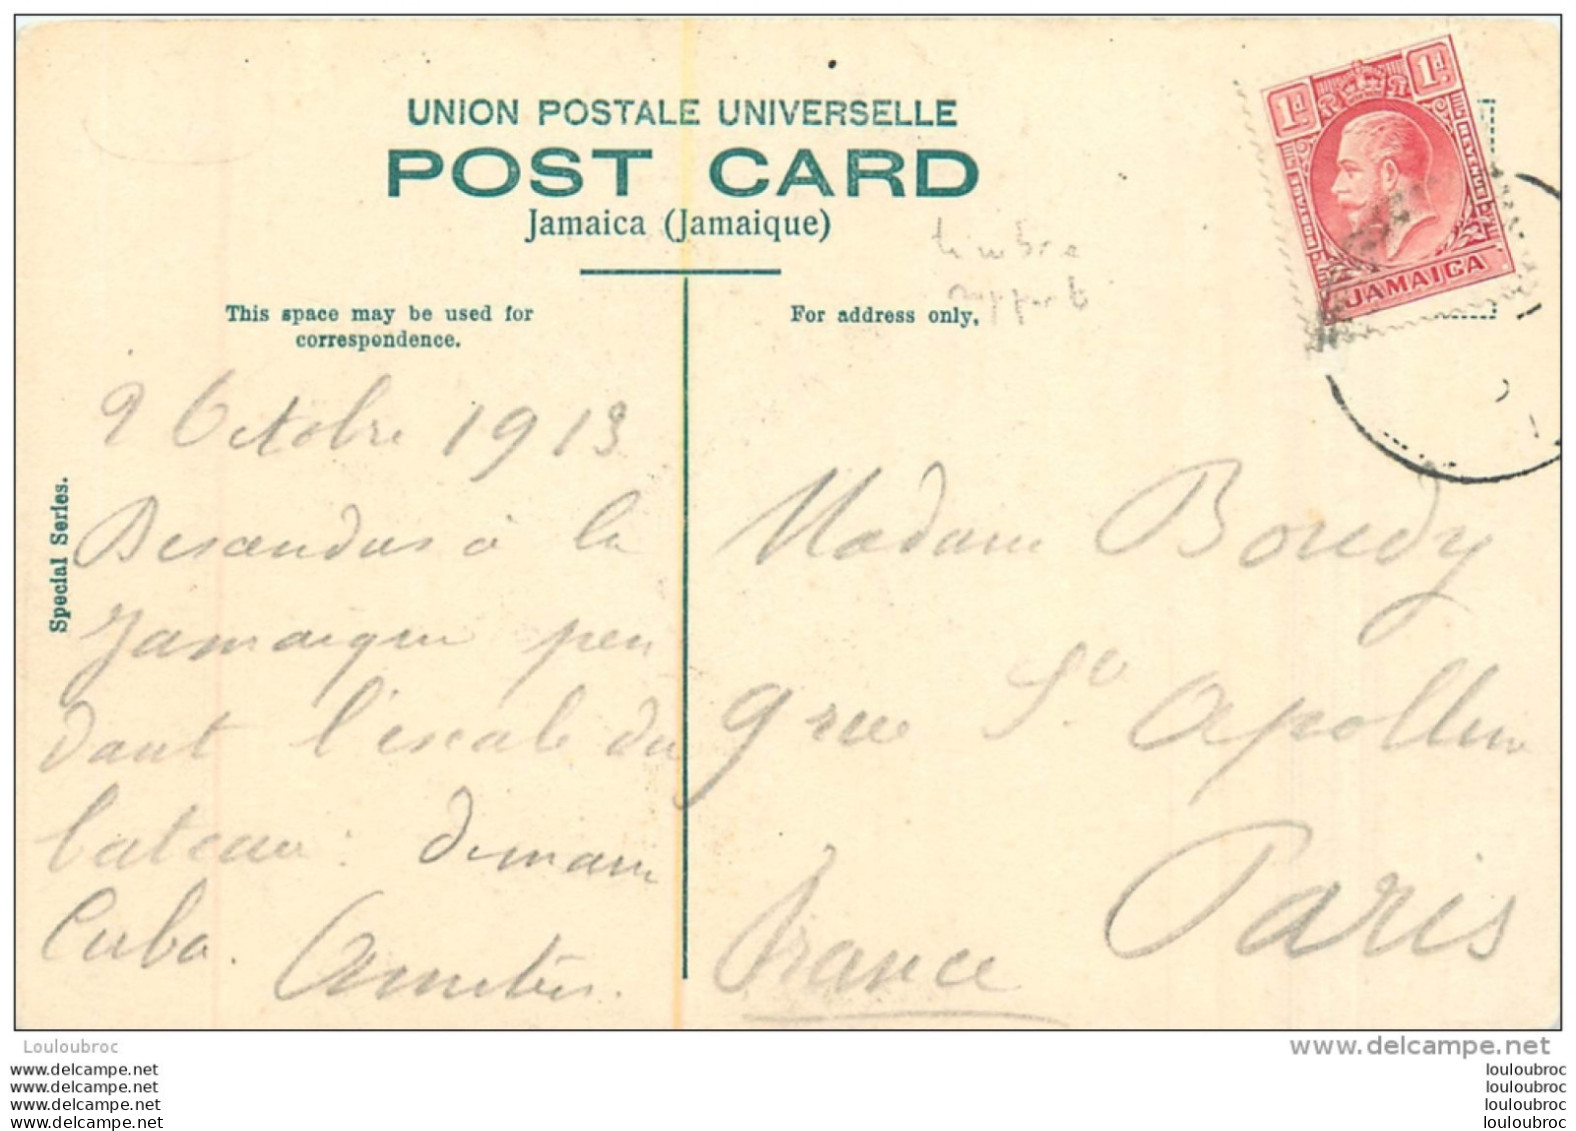 UNION POSTALE UNIVERSELLE
POST CARD
Jamaica (Jamaique)
1d 1d
POSTAGE REVENUE
JAMAICA
timbre
rapporté
This space may be used for
correspondence.
For address only,
Special Series.
9 Octobre 1913
Descendus à la
Jamaique pen
dant l'escale du
bateau : demain
Cuba. Amitiés.
Madame Bouedy
9 rue St Apolline
Paris
France
Louloubroc
www.delcampe.net
www.delcampe.net
www.delcampe.net
www.delcampe.net
www.delcampe.net
louloubroc
louloubroc
louloubroc
louloubroc